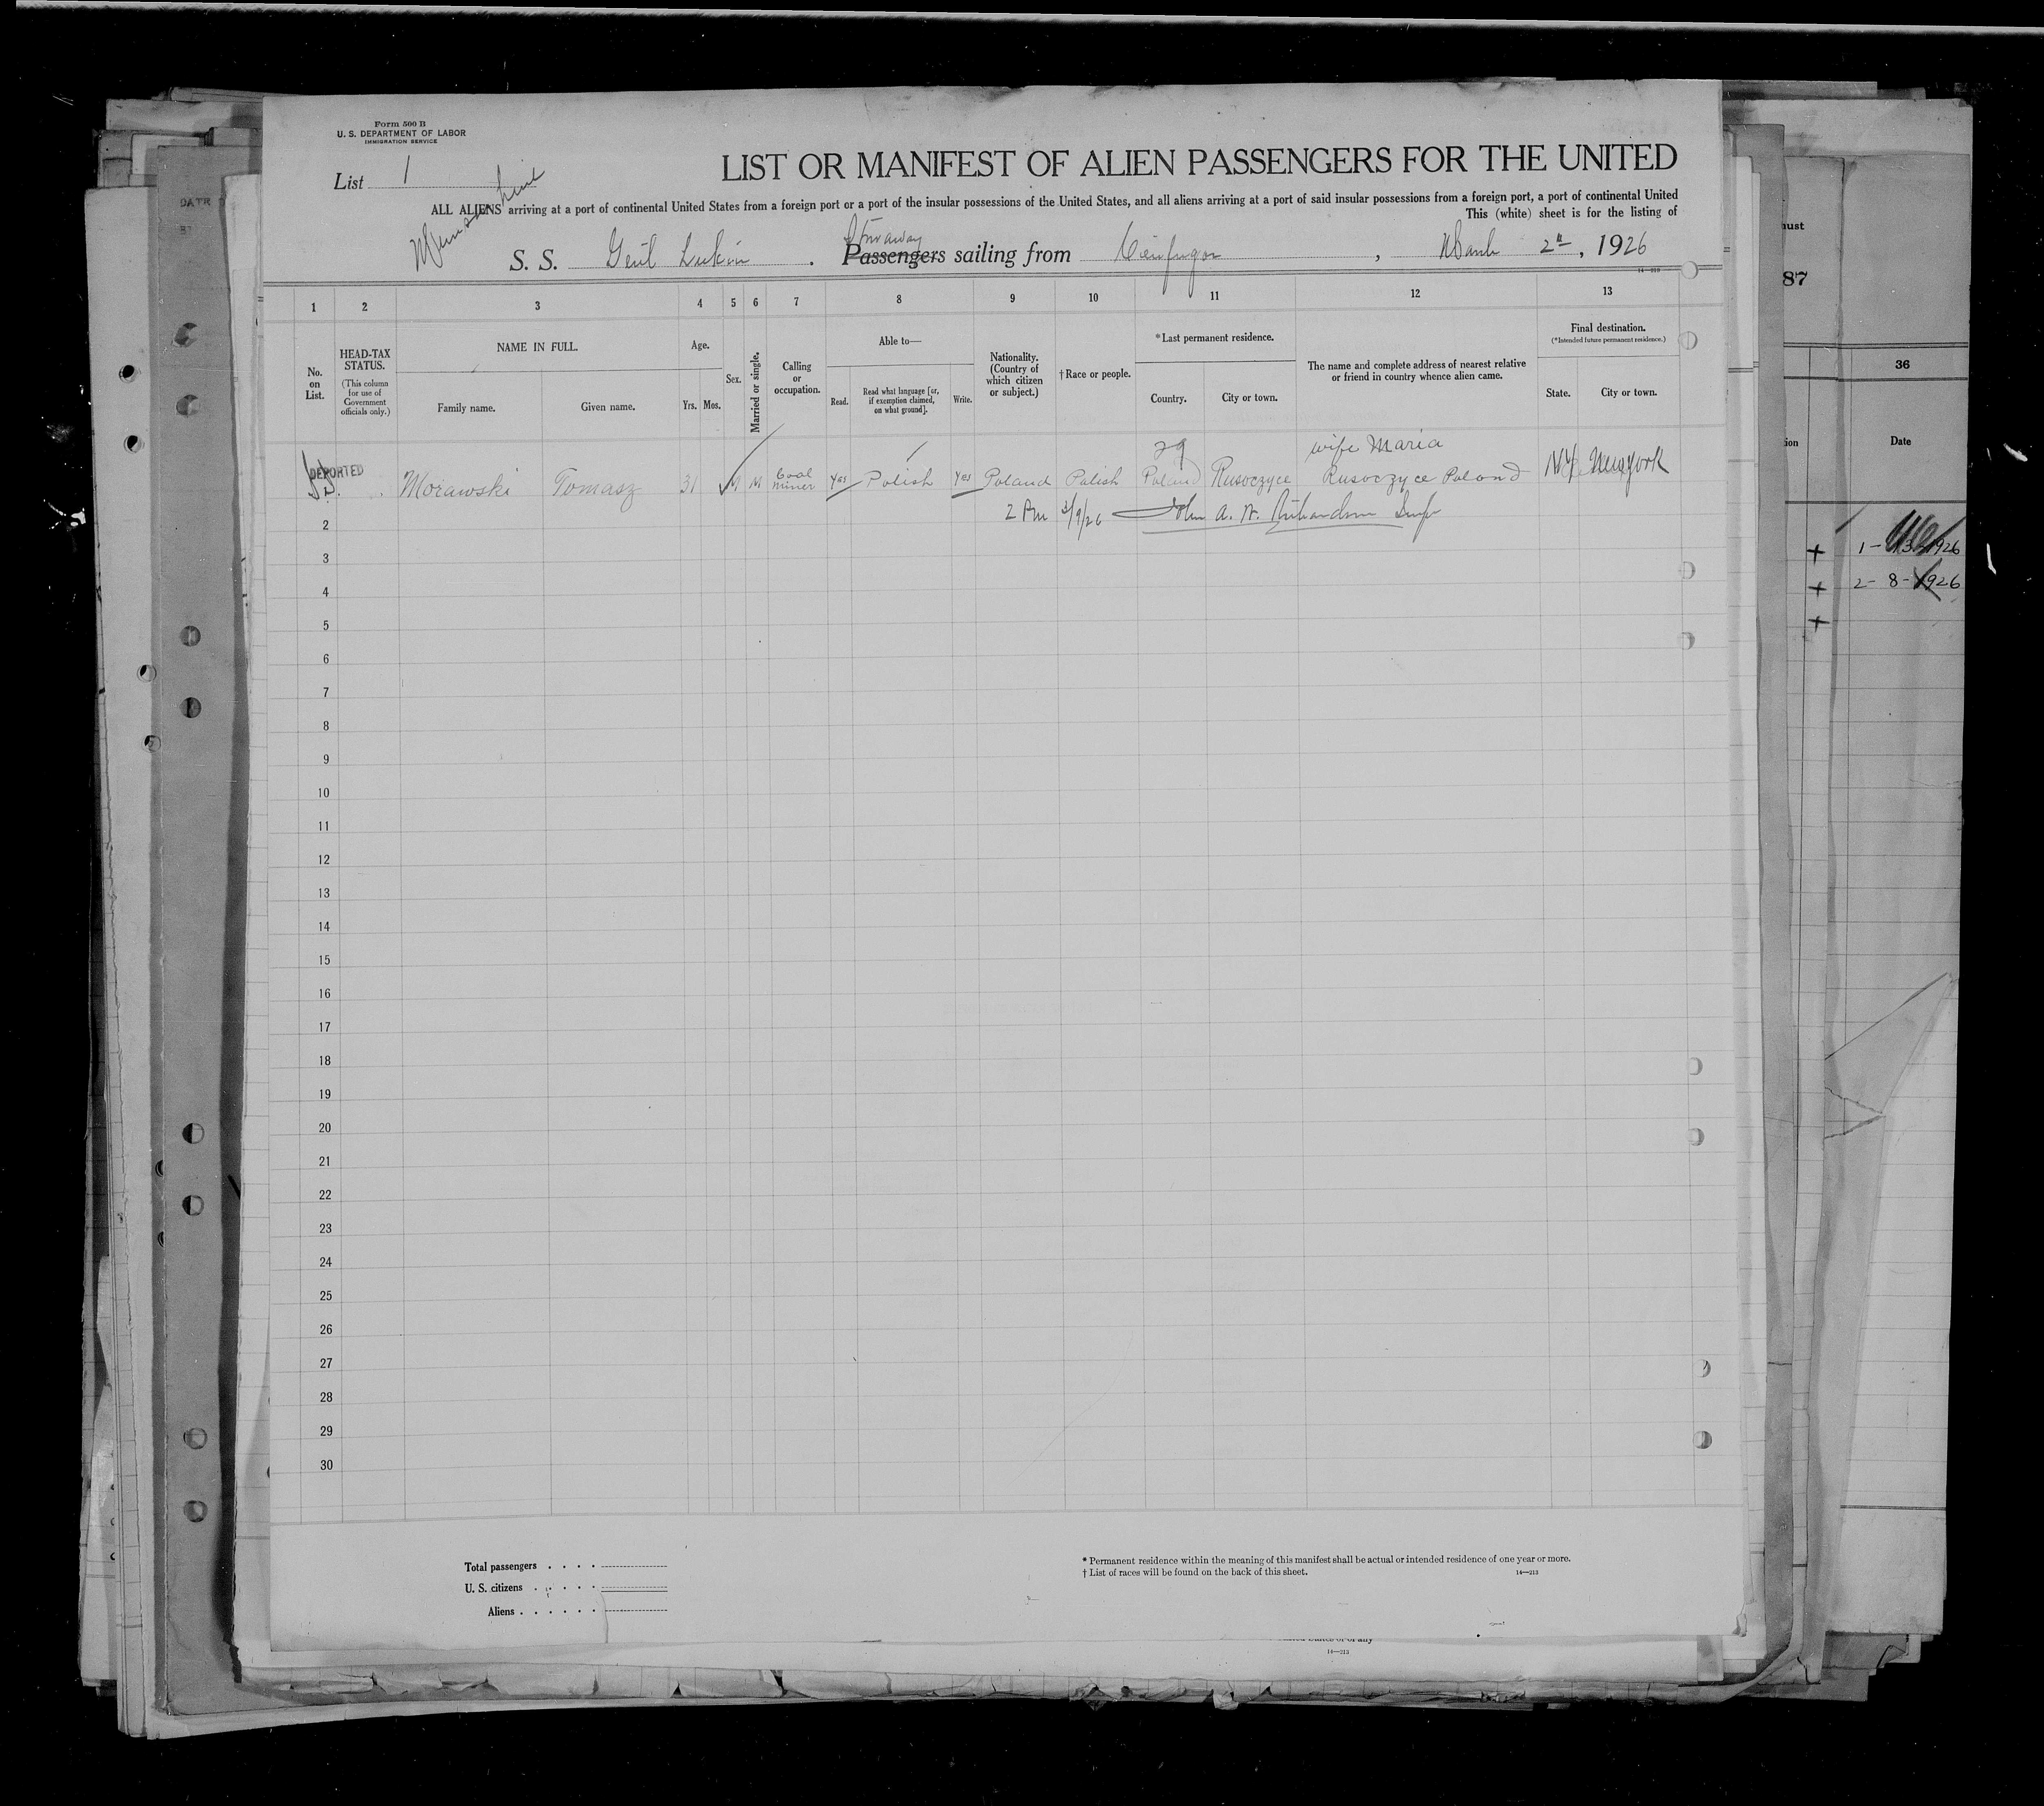 Form 500 B
U. S. DEPARTMENT OF LABOR
IMMIGRATION SERVICE
List 1
LIST OR MANIFEST OF ALIEN PASSENGERS FOR THE UNITED
ALL ALIENS arriving at a port of continental United States from a foreign port or a port of the insular possessions of the United States, and all aliens arriving at a port of said insular possessions from a foreign port, a port of continental United
This (white) sheet is for the listing of
Munson Line
Stowaway
S. S. Passengers sailing from , March 2, 1926
14—210
1 2 3 4 5 6 7 8 9 10 11 12 13
No. on List.
HEAD-TAX STATUS.
(This column for use of Government officials only.)
NAME IN FULL.
Family name.
Given name.
Age.
Yrs. Mos.
Sex.
Married or single.
Calling or occupation.
Able to—
Read.
Read what language [or, if exemption claimed, on what ground].
Write.
Nationality. (Country of which citizen or subject.)
†Race or people.
*Last permanent residence.
Country.
City or town.
The name and complete address of nearest relative or friend in country whence alien came.
Final destination.
(*Intended future permanent residence.)
State.
City or town.
29 wife Maria
DEPORTED Morawski Tomasz 31 M M Coal miner Yes Polish Yes Poland Polish Poland Rusoczyce Rusoczyce Poland N.Y. New York
2 2 PM 3/9/26 John A. W. Richardson Insp
3
4
5
6
7
8
9
10
11
12
13
14
15
16
17
18
19
20
21
22
23
24
25
26
27
28
29
30
Total passengers
U. S. citizens
Aliens
* Permanent residence within the meaning of this manifest shall be actual or intended residence of one year or more.
† List of races will be found on the back of this sheet.
14—213
14—213
87
36
Date
1-13-1926
2-8-1926